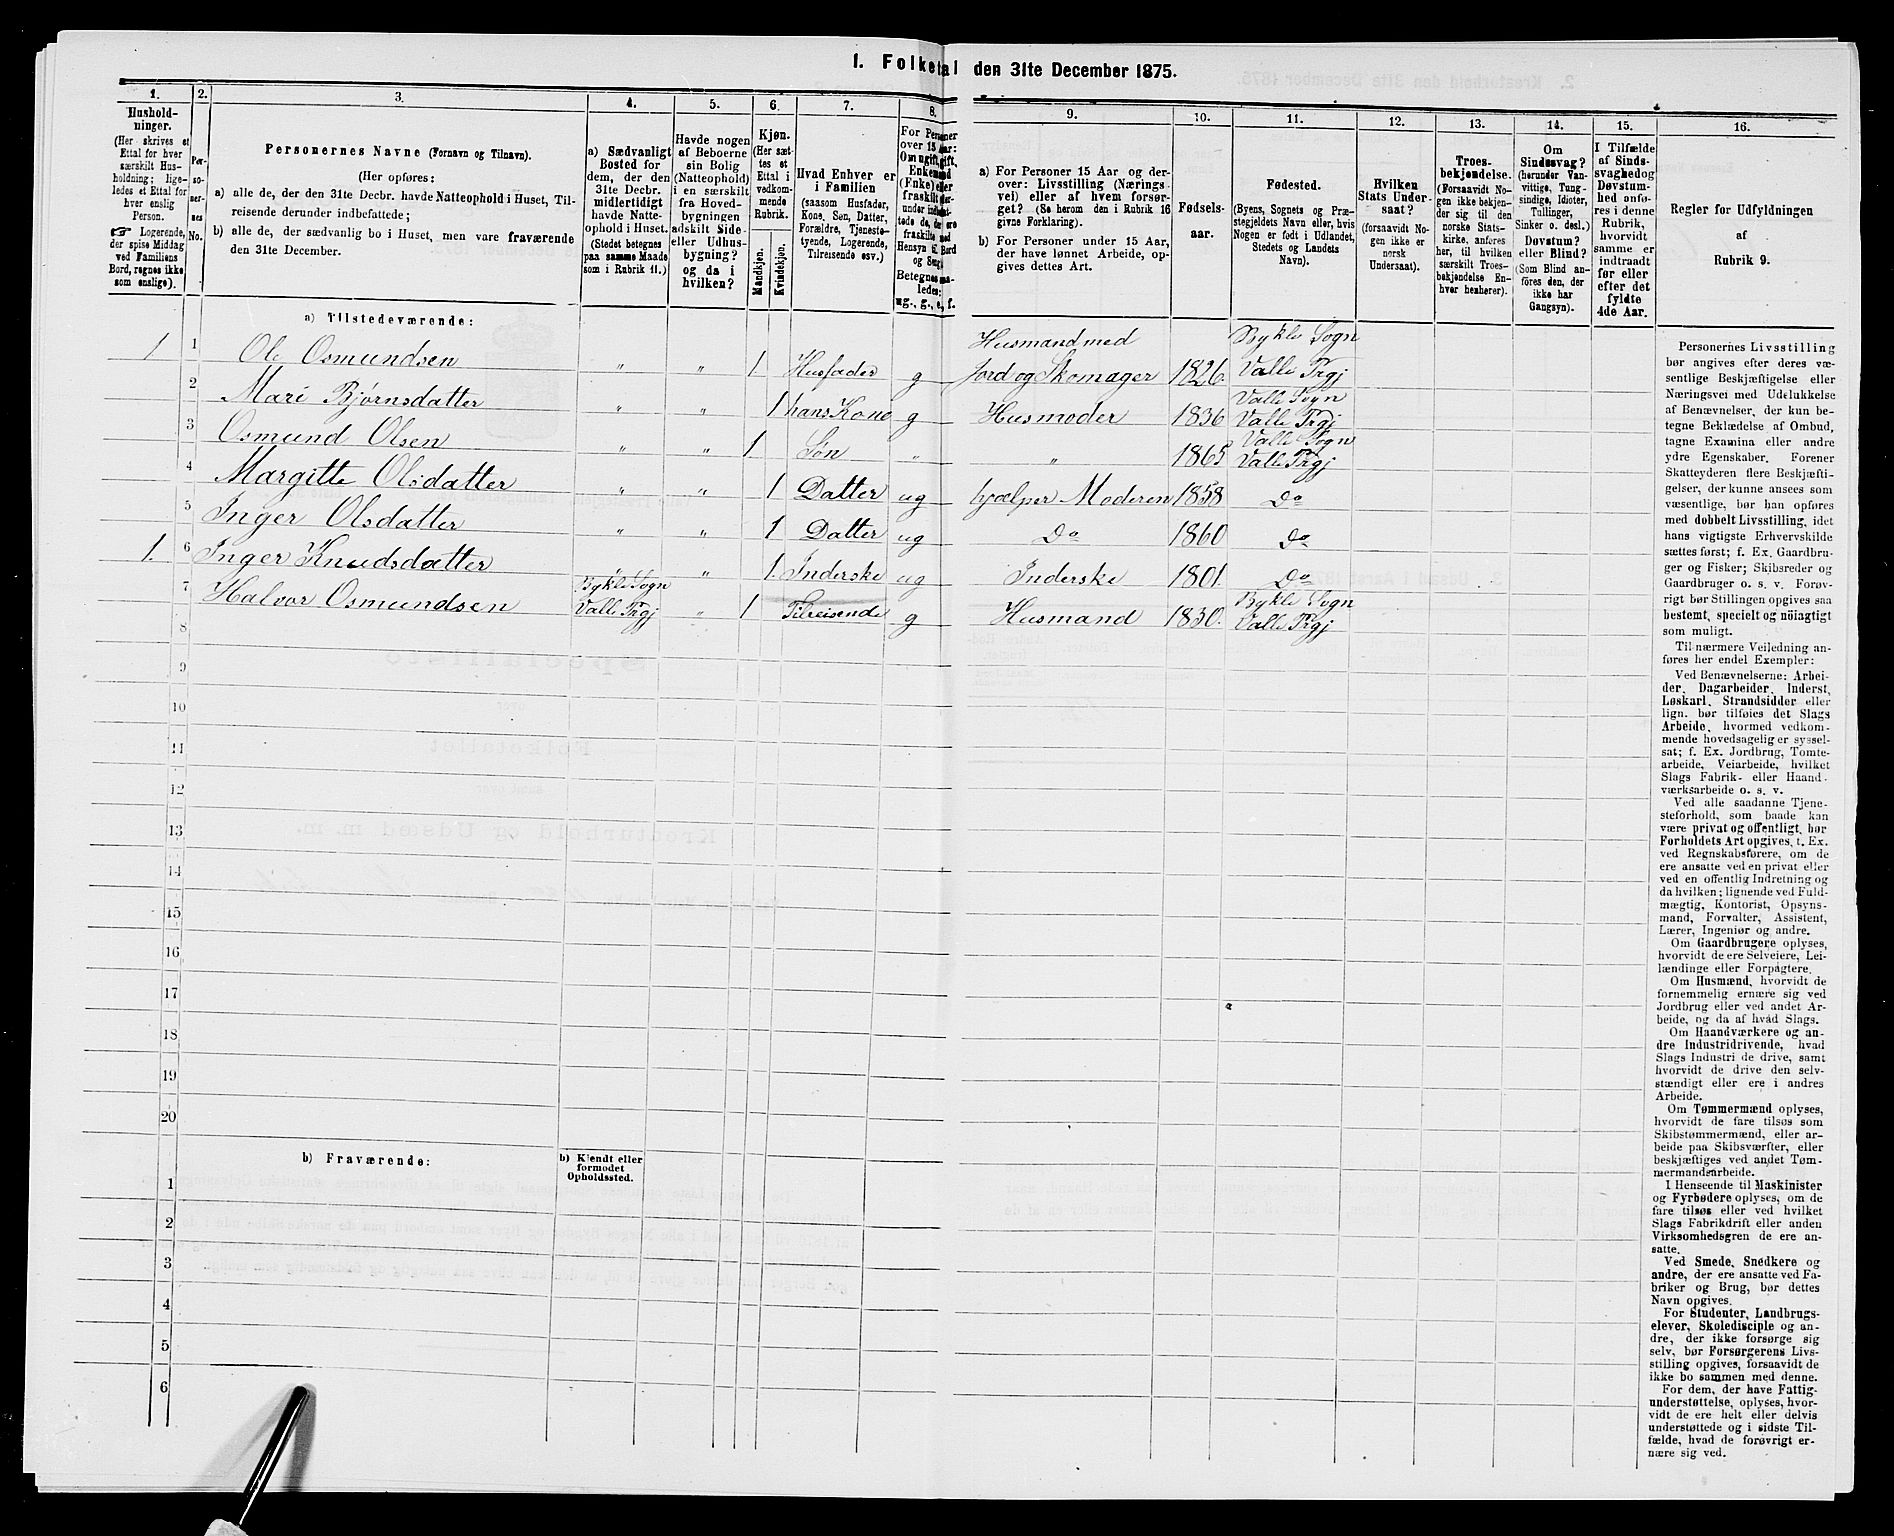 1. Folketal den 31te December 1875.
1.
Hushold-
ninger.
(Her skrives et
Ettal for hver
særskilt Hus-
holdning; lige-
ledes et Ettal for
hver enslig
Person.
☞ Logerende,
der spise Middag
ved Familiens
Bord, regnes ikke
som enslige).
2.
Per-
so-
ner-
nes
No.
3.
Personernes Navne (Fornavn og Tilnavn).
(Her opføres:
a) alle de, der den 31te Decbr. havde Natteophold i Huset, Til-
reisende derunder indbefattede;
b) alle de, der sædvanlig bo i Huset, men vare fraværende
den 31te December.
4.
a) Sædvanligt
Bosted for
dem, der den
31te Decbr.
midlertidigt
havde Natte-
ophold i Huset.
(Stedet betegnes
paa samme Maade
som i Rubrik 11.)
5.
Havde nogen
af Beboerne
sin Bolig
(Natteophold)
i en særskilt
fra Hoved-
bygningen
adskilt Side-
eller Udhus-
bygning?
og da i
hvilken?
6.
Kjøn.
(Her sæt-
tes et
Ettal i
vedkom-
mende
Rubrik.
Mandkjøn.
Kvindekjøn.
7.
Hvad Enhver er
i Familien
(saasom Husfader,
Kone, Søn, Datter,
Forældre, Tjeneste-
tyende, Logerende,
Tilreisende osv.)
8.
For Personer
over 15 Aar:
Om ugift, gift,
Enkemand
(Enke) eller
fraskilt
Hensyn til Bord
og Seng.
Betegnes saa-
ledes:
ug., g., e., f.
9.
a) For Personer 15 Aar og der-
over: Livsstilling (Nærings-
vei) eller af hvem forsør-
get? (Se herom den i Rubrik 16
givne Forklaring).
b) For Personer under 15 Aar,
der have lønnet Arbeide, op-
gives dettes Art.
10.
Fødsels-
aar.
11.
Fødested.
(Byens, Sognets og Præ-
stegjeldets Navn eller, hvis
Nogen er født i Udlandet,
Stedets og Landets
Navn).
12.
Hvilken
Stats Under-
saat?
(forsaavidt No-
gen ikke er
norsk
Undersaat).
13.
Troes-
bekjendelse.
(Forsaavidt No-
gen ikke bekjen-
der sig til den
norske Stats-
kirke, anføres
her, til hvilken
særskilt Troes-
bekjendelse En-
hver henhører).
14.
Om
Sindssvag?
(herunder Van-
vittige, Tung-
sindige, Idioter,
Tullinger,
Sinker o. desl.)
Døvstum?
eller Blind?
(Som Blind an-
føres den, der
ikke har
Gangsyn).
15.
I Tilfælde
af Sinds-
svaghed og
Døvstum-
hed anfø-
res i denne
Rubrik,
hvorvidt
samme er
indtraadt
før eller
efter det
fyldte
4de Aar.
16.
Regler for Udfyldningen
af
Rubrik 9.
a) Tilstedeværende:
1 1 Ole Osmundsen „ „ 1 Husfader g Husmand med jord og Skomager 1826. Bykle Sogn Valle Prgj
2 Mari Bjørnsdatter „ „ 1 hans Kone g Husmoder 1836 Valle Sogn Valle Prgj
3 Osmund Olsen „ „ 1 Søn „ „ 1865 Valle Sogn Valle Prgj
4 Margitte Olsdatter „ „ 1 Datter ug hjælper Moderen 1858 Do
5 Inger Olsdatter „ „ 1 Datter ug Do 1860 Do
1. 6 Inger Knudsdatter „ „ 1. Inderske ug Inderske 1801. Do
7 Halvor Osmundsen Bykle Sogn Valle Prgj „ 1 Tilreisende g Husmand 1830. Bykle Sogn Valle Prgj
8
9
10
11
12
13
14
15
16
17
18
19
20
b) Fraværende:
b) Kjendt eller
formodet
Opholdssted.
1
2
3
4
5
6
Personernes Livsstilling
bør angives efter deres væ-
sentlige Beskjæftigelse eller
Næringsvei med Udelukkelse
af Benævnelser, der kun be-
tegne Beklædelse af Ombud,
tagne Examina eller andre
ydre Egenskaber. Forener
Skatteyderen flere Beskjæfti-
gelser, der kunne ansees som
væsentlige, bør han opføres
med dobbelt Livsstilling, idet
hans vigtigste Erhvervskilde
sættes først; f. Ex. Gaardbru-
ger og Fisker; Skibsreder og
Gaardbruger o. s. v. Forøv-
rigt bør Stillingen opgives saa
bestemt, specielt og nöiagtigt
som muligt.
Til nærmere Veiledning an-
føres her endel Exempler:
Ved Benævnelserne: Arbei-
der, Dagarbeider, Inderst,
Løskarl, Strandsidder eller
lign. bør tilføies det Slags
Arbeide, hvormed vedkom-
mende hovedsagelig er syssel-
sat; f. Ex. Jordbrug, Tomte-
arbeide, Veiarbeide, hvilket
Slags Fabrik- eller Haand-
værksarbeide o. s. v.
Ved alle saadanne Tjene-
steforhold, som baade kan
være privat og offentligt, bør
Forholdets Art opgives, t. Ex.
ved Regnskabsførere, om de
ere ansatte ved en privat eller
ved en offentlig Indretning og
da hvilken; lignende ved Fuld-
mægtig, Kontorist, Opsyns-
mand, Forvalter, Assistent,
Lærer, Ingeniør og andre.
Om Gaardbrugere oplyses,
hvorvidt de ere Selveiere, Lei-
lændinge eller Forpagtere.
Om Husmænd, hvorvidt de
fornemmelig ernære sig ved
Jordbrug eller ved andet Ar-
beide, og da af hvad Slags.
Om Haandværkere og an-
dre Industridrivende, hvad
Slags Industri de drive, samt
hvorvidt de drive den selv-
stændigt eller ere i andres
Arbeide.
Om Tømmermænd oplyses,
hvorvidt de fare tilsøs som
Skibstømmermænd, eller ar-
beide paa Skibsværfter, eller
beskjæftiges ved andet Tøm-
mermandsarbeide.
I Henseende til Maskinister
og Fyrbødere oplyses, om de
fare tilsøs eller ved hvilket
Slags Fabrikdrift eller anden
Virksomhedsgren de ere an-
satte.
Ved Smede, Snedkere og
andre, der ere ansatte ved Fa-
briker og Brug, bør dettes
Navn opgives.
For Studenter, Landbrugs-
elever, Skoledisciple og an-
dre, der ikke forsørge sig
selv, bør Forsørgerens Livs-
stilling opgives, forsaavidt de
ikke bo sammen med denne.
For dem, der have Fattig-
understøttelse, oplyses, hvor-
vidt de ere helt eller delvis
understøttede og i sidste Til-
fælde, hvad de forøvrigt er-
nære sig ved.